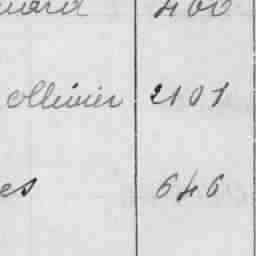 uard 400
Ollivier 2101
es 646